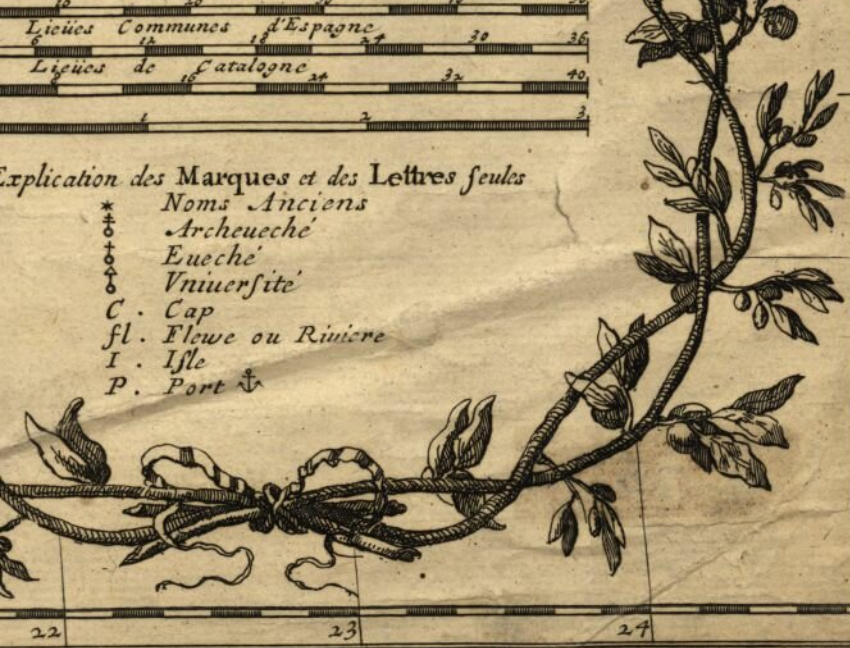 Lieües Communes d'Espagne
6 12 18 24 30 36
Lieües de Catalogne
8 16 24 32 40
1 2 3
Explication des Marques et des Lettres ſeules
* Noms Anciens
Archeueché
Eueché
Vniuerſité
C . Cap
fl . Fleuue ou Riuiere
I . Iſle
P . Port
22 23 24